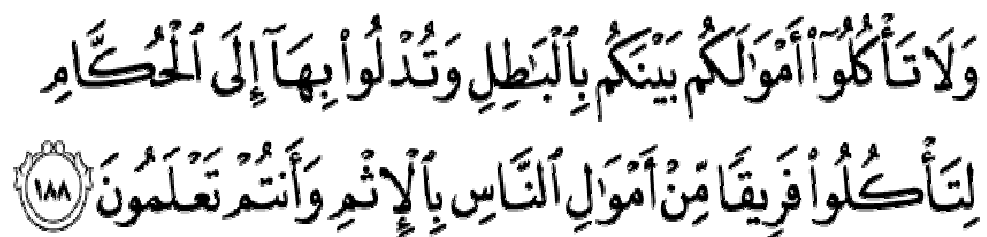 وَلَا تَأْكُلُوٓا۟ أَمْوَٰلَكُم بَيْنَكُم بِٱلْبَٰطِلِ وَتُدْلُوا۟ بِهَآ إِلَى ٱلْحُكَّامِ
لِتَأْكُلُوا۟ فَرِيقًا مِّنْ أَمْوَٰلِ ٱلنَّاسِ بِٱلْإِثْمِ وَأَنتُمْ تَعْلَمُونَ ١٨٨